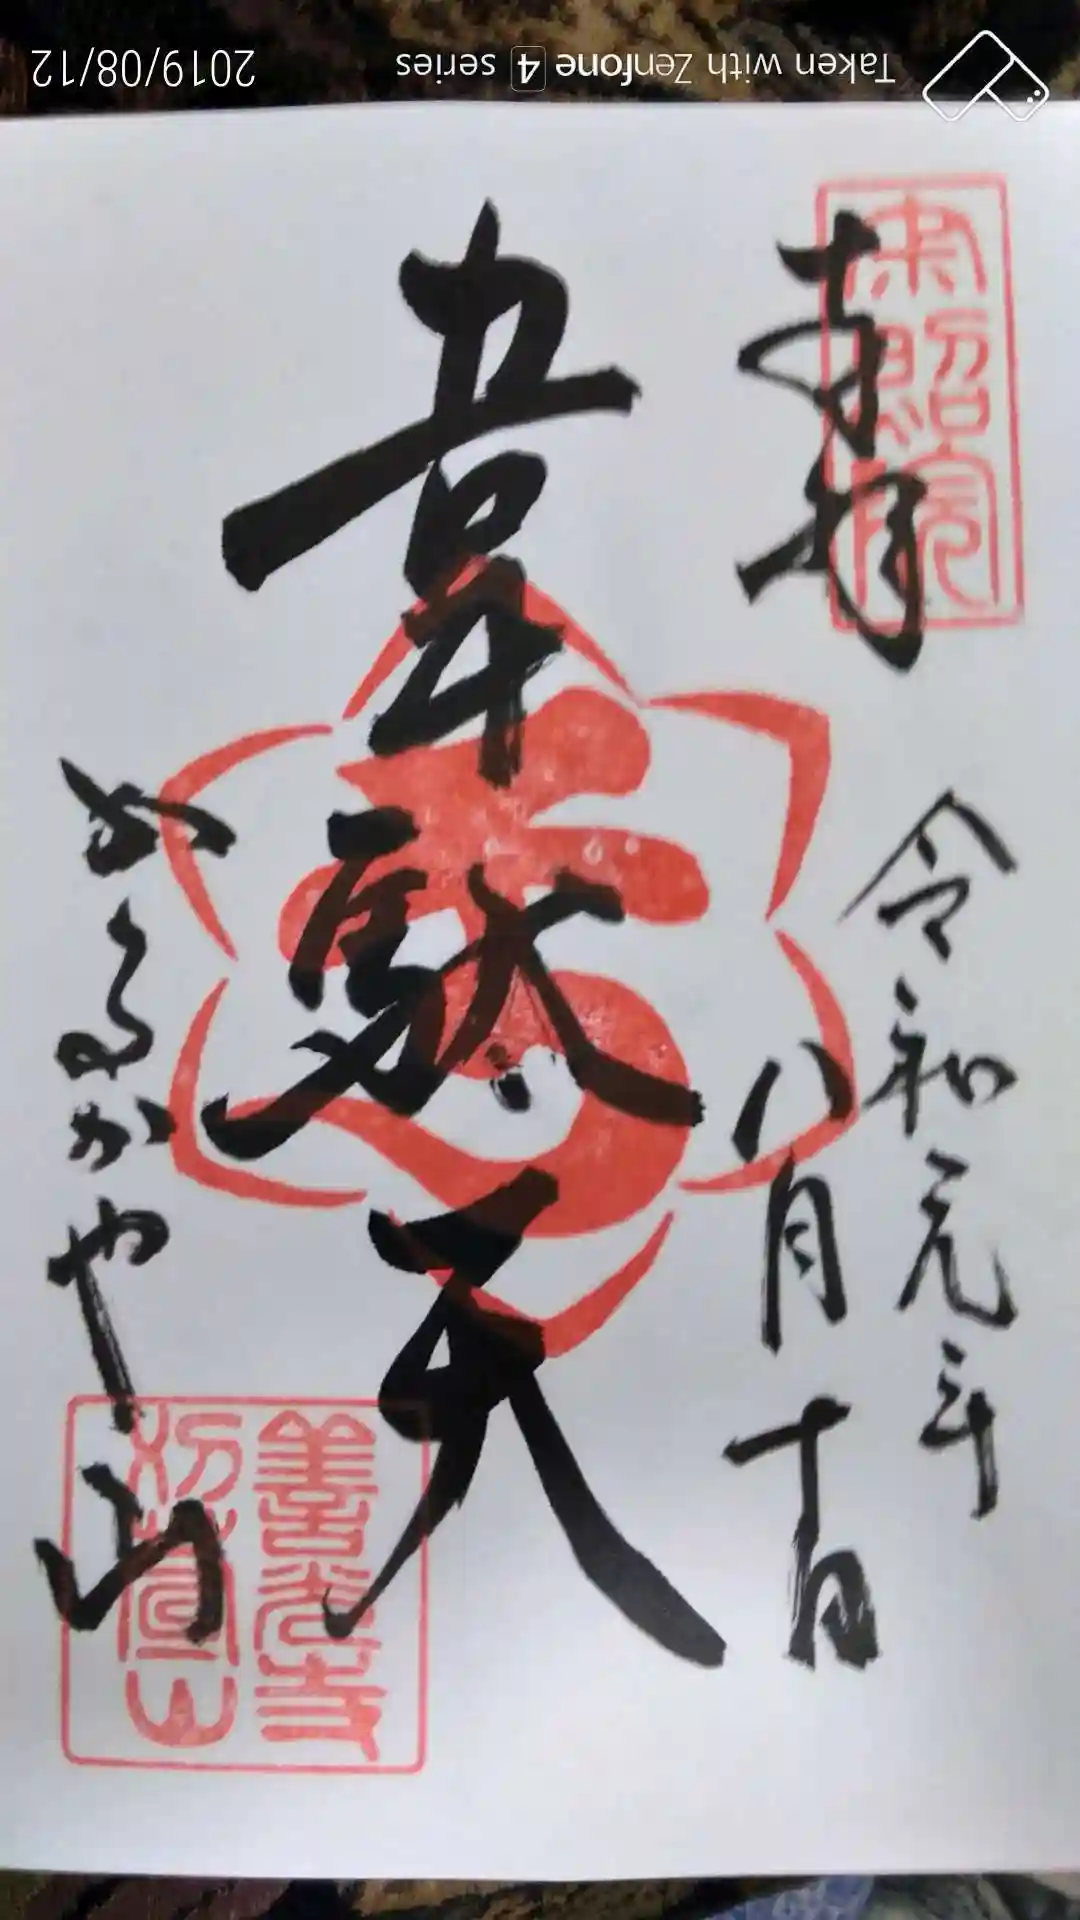 Taken with Zenfone 4 series
2019/08/12
奉拝
令和元年
八月十日
韋駄天
かるかや山
善光寺
山